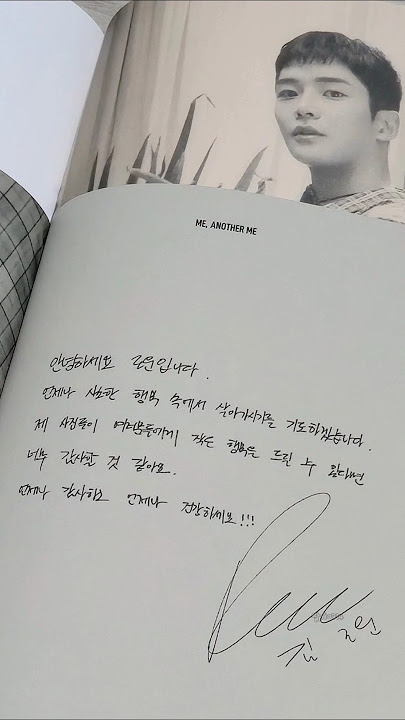 ME, ANOTHER ME
안녕하세요 로운입니다.
언제나 사소한 행복 속에서 살아가시기를 기도하겠습니다.
제 사진들이 여러분들에게 작은 행복을 드릴 수 있다면
너무 감사할 것 같아요.
언제나 감사하고 언제나 건강하세요!!!